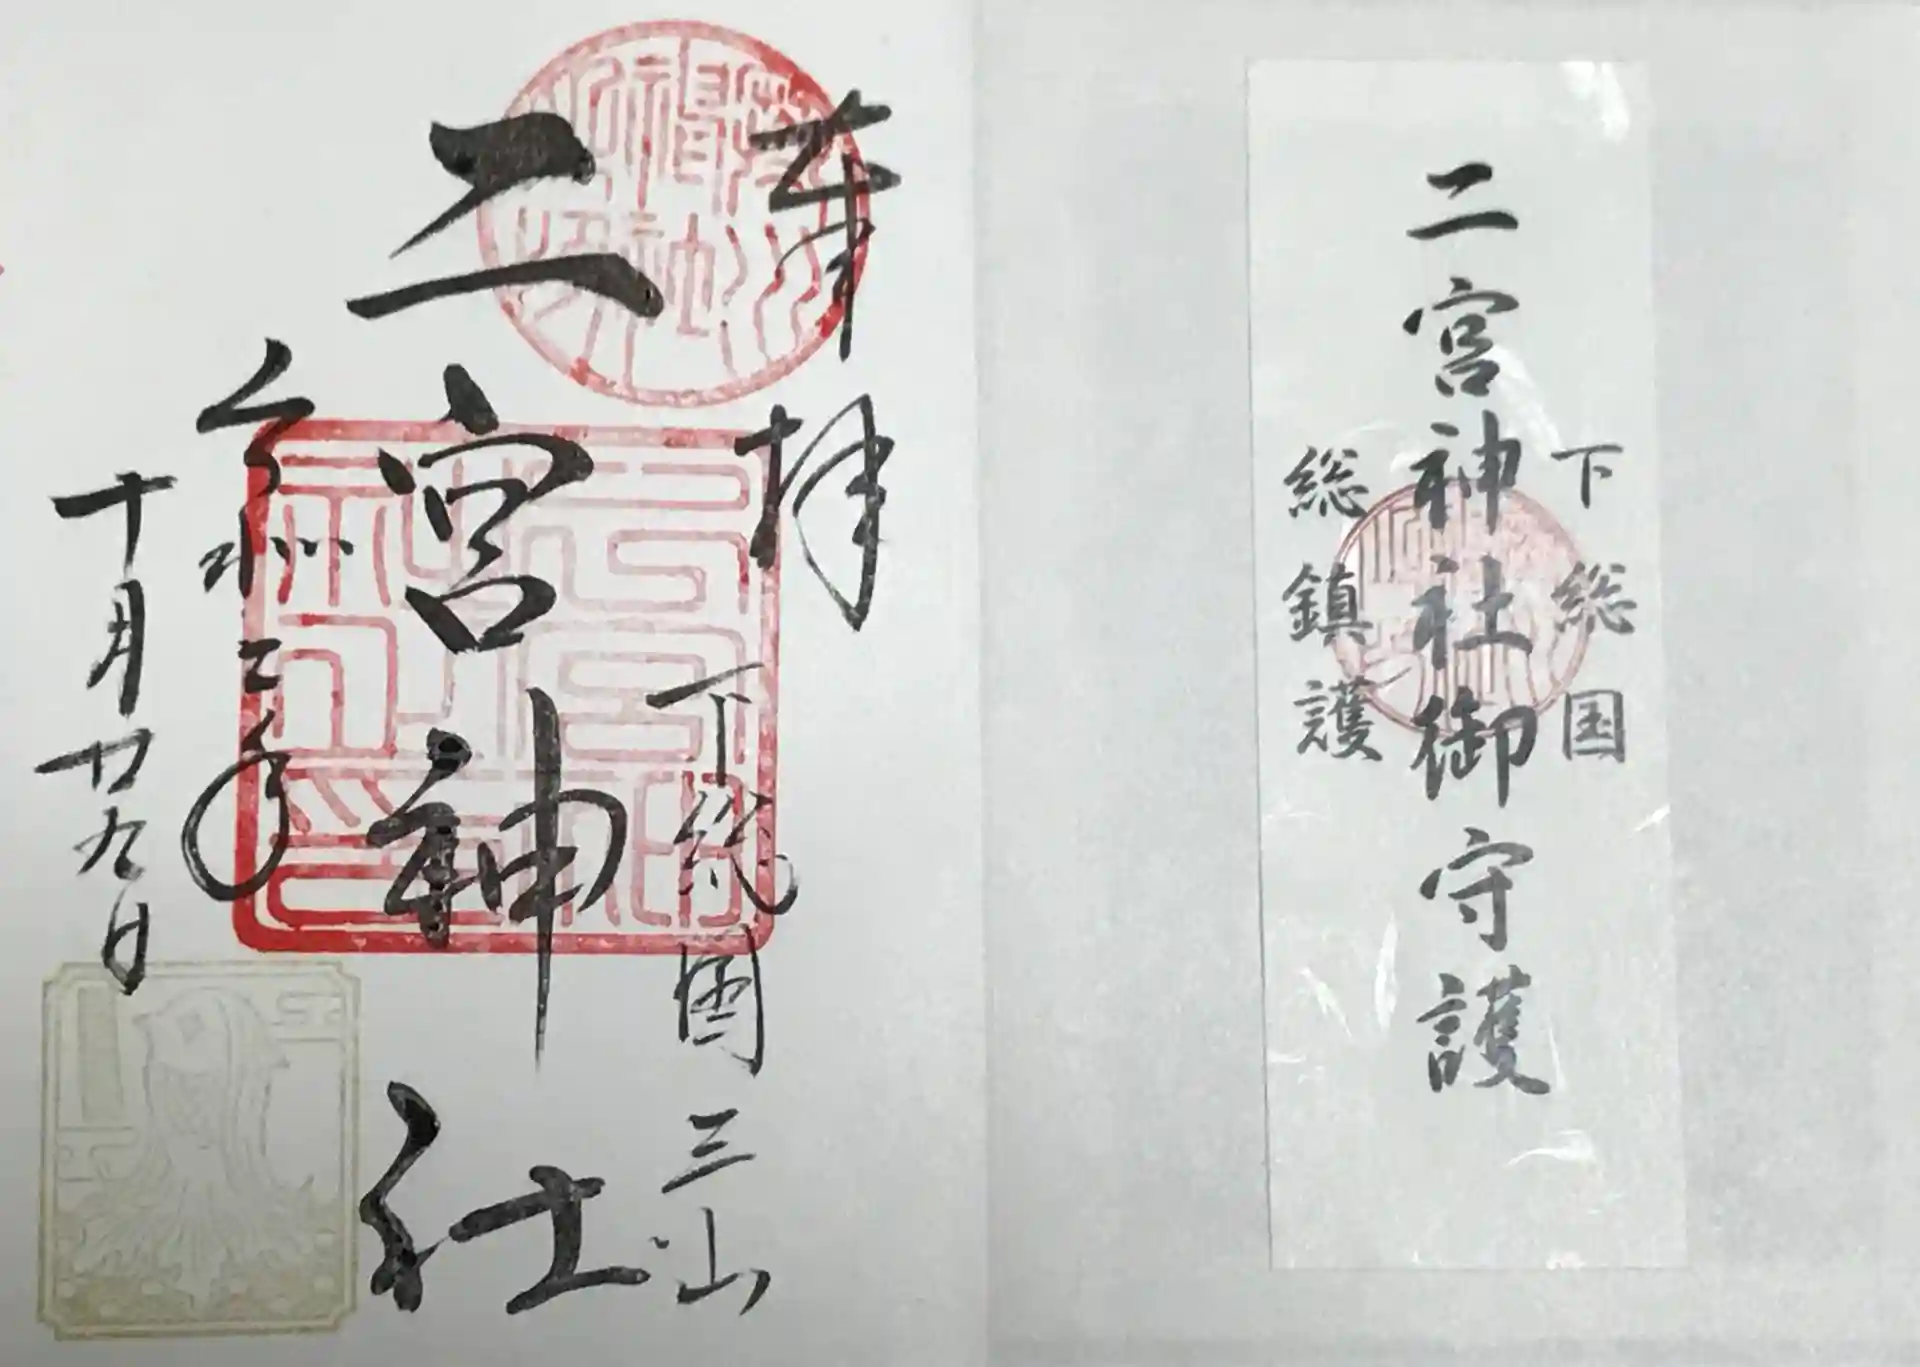 下総国
二宮神社御守護
総鎮護
奉拝
下総國三山
二宮神社
令和二年
十月廿九日